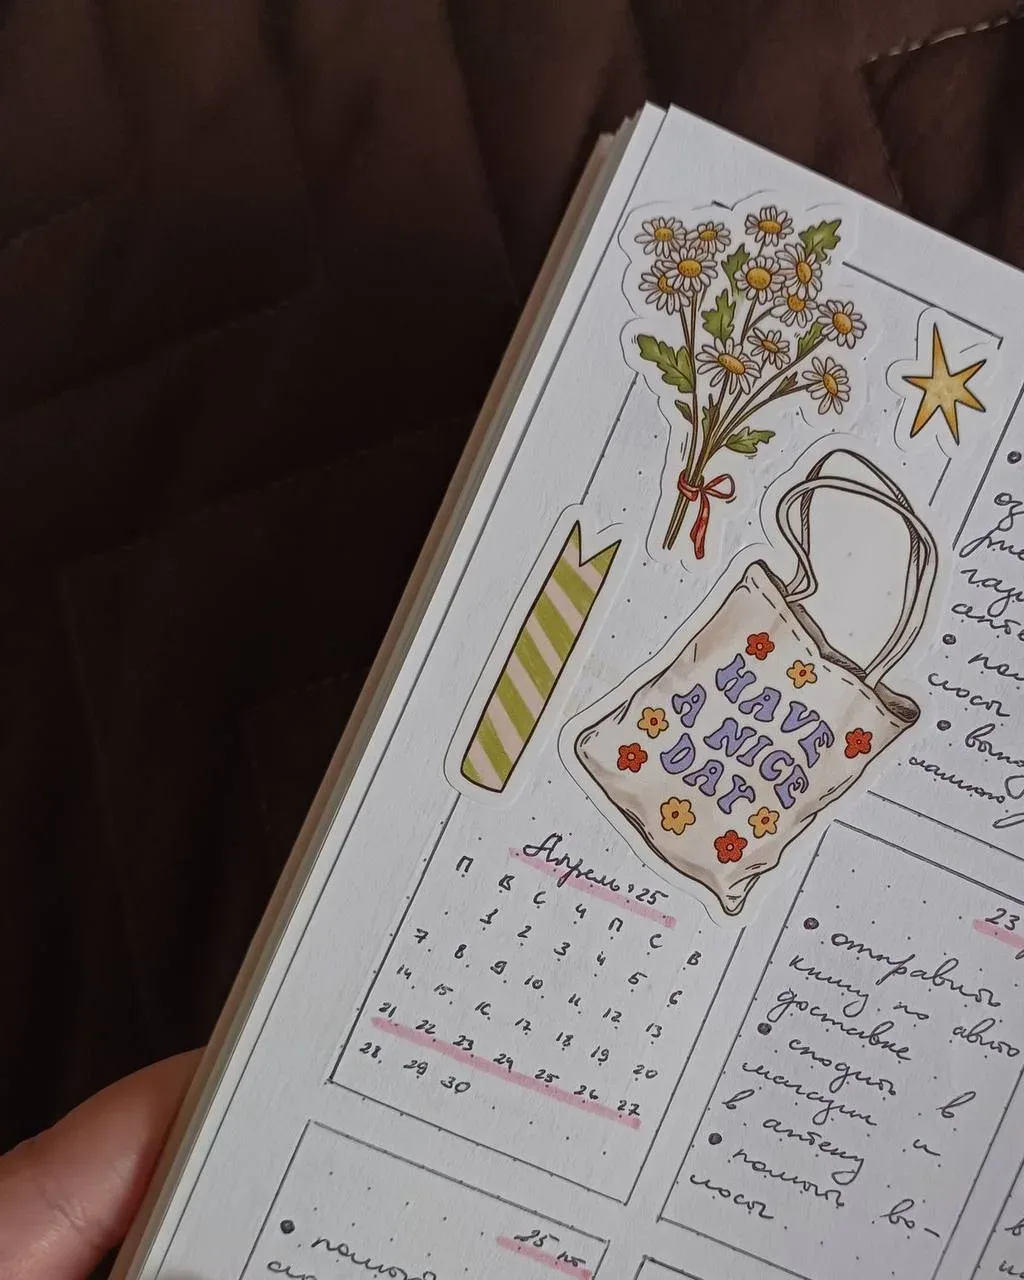 HAVE
A NICE
DAY
Апрель '25
П В С Ч П С В
1 2 3 4 5 6
7. 8. 9 10 11 12 13
14. 15. 16. 17. 18 19 20
21 22 23 24 25 26 27
28. 29 30
• пом
лосы
23
• отправить
книгу по авито
доставке
• сходить в
магазин и
в аптеку
• помыть во-
лосы
25 пт
• помыть